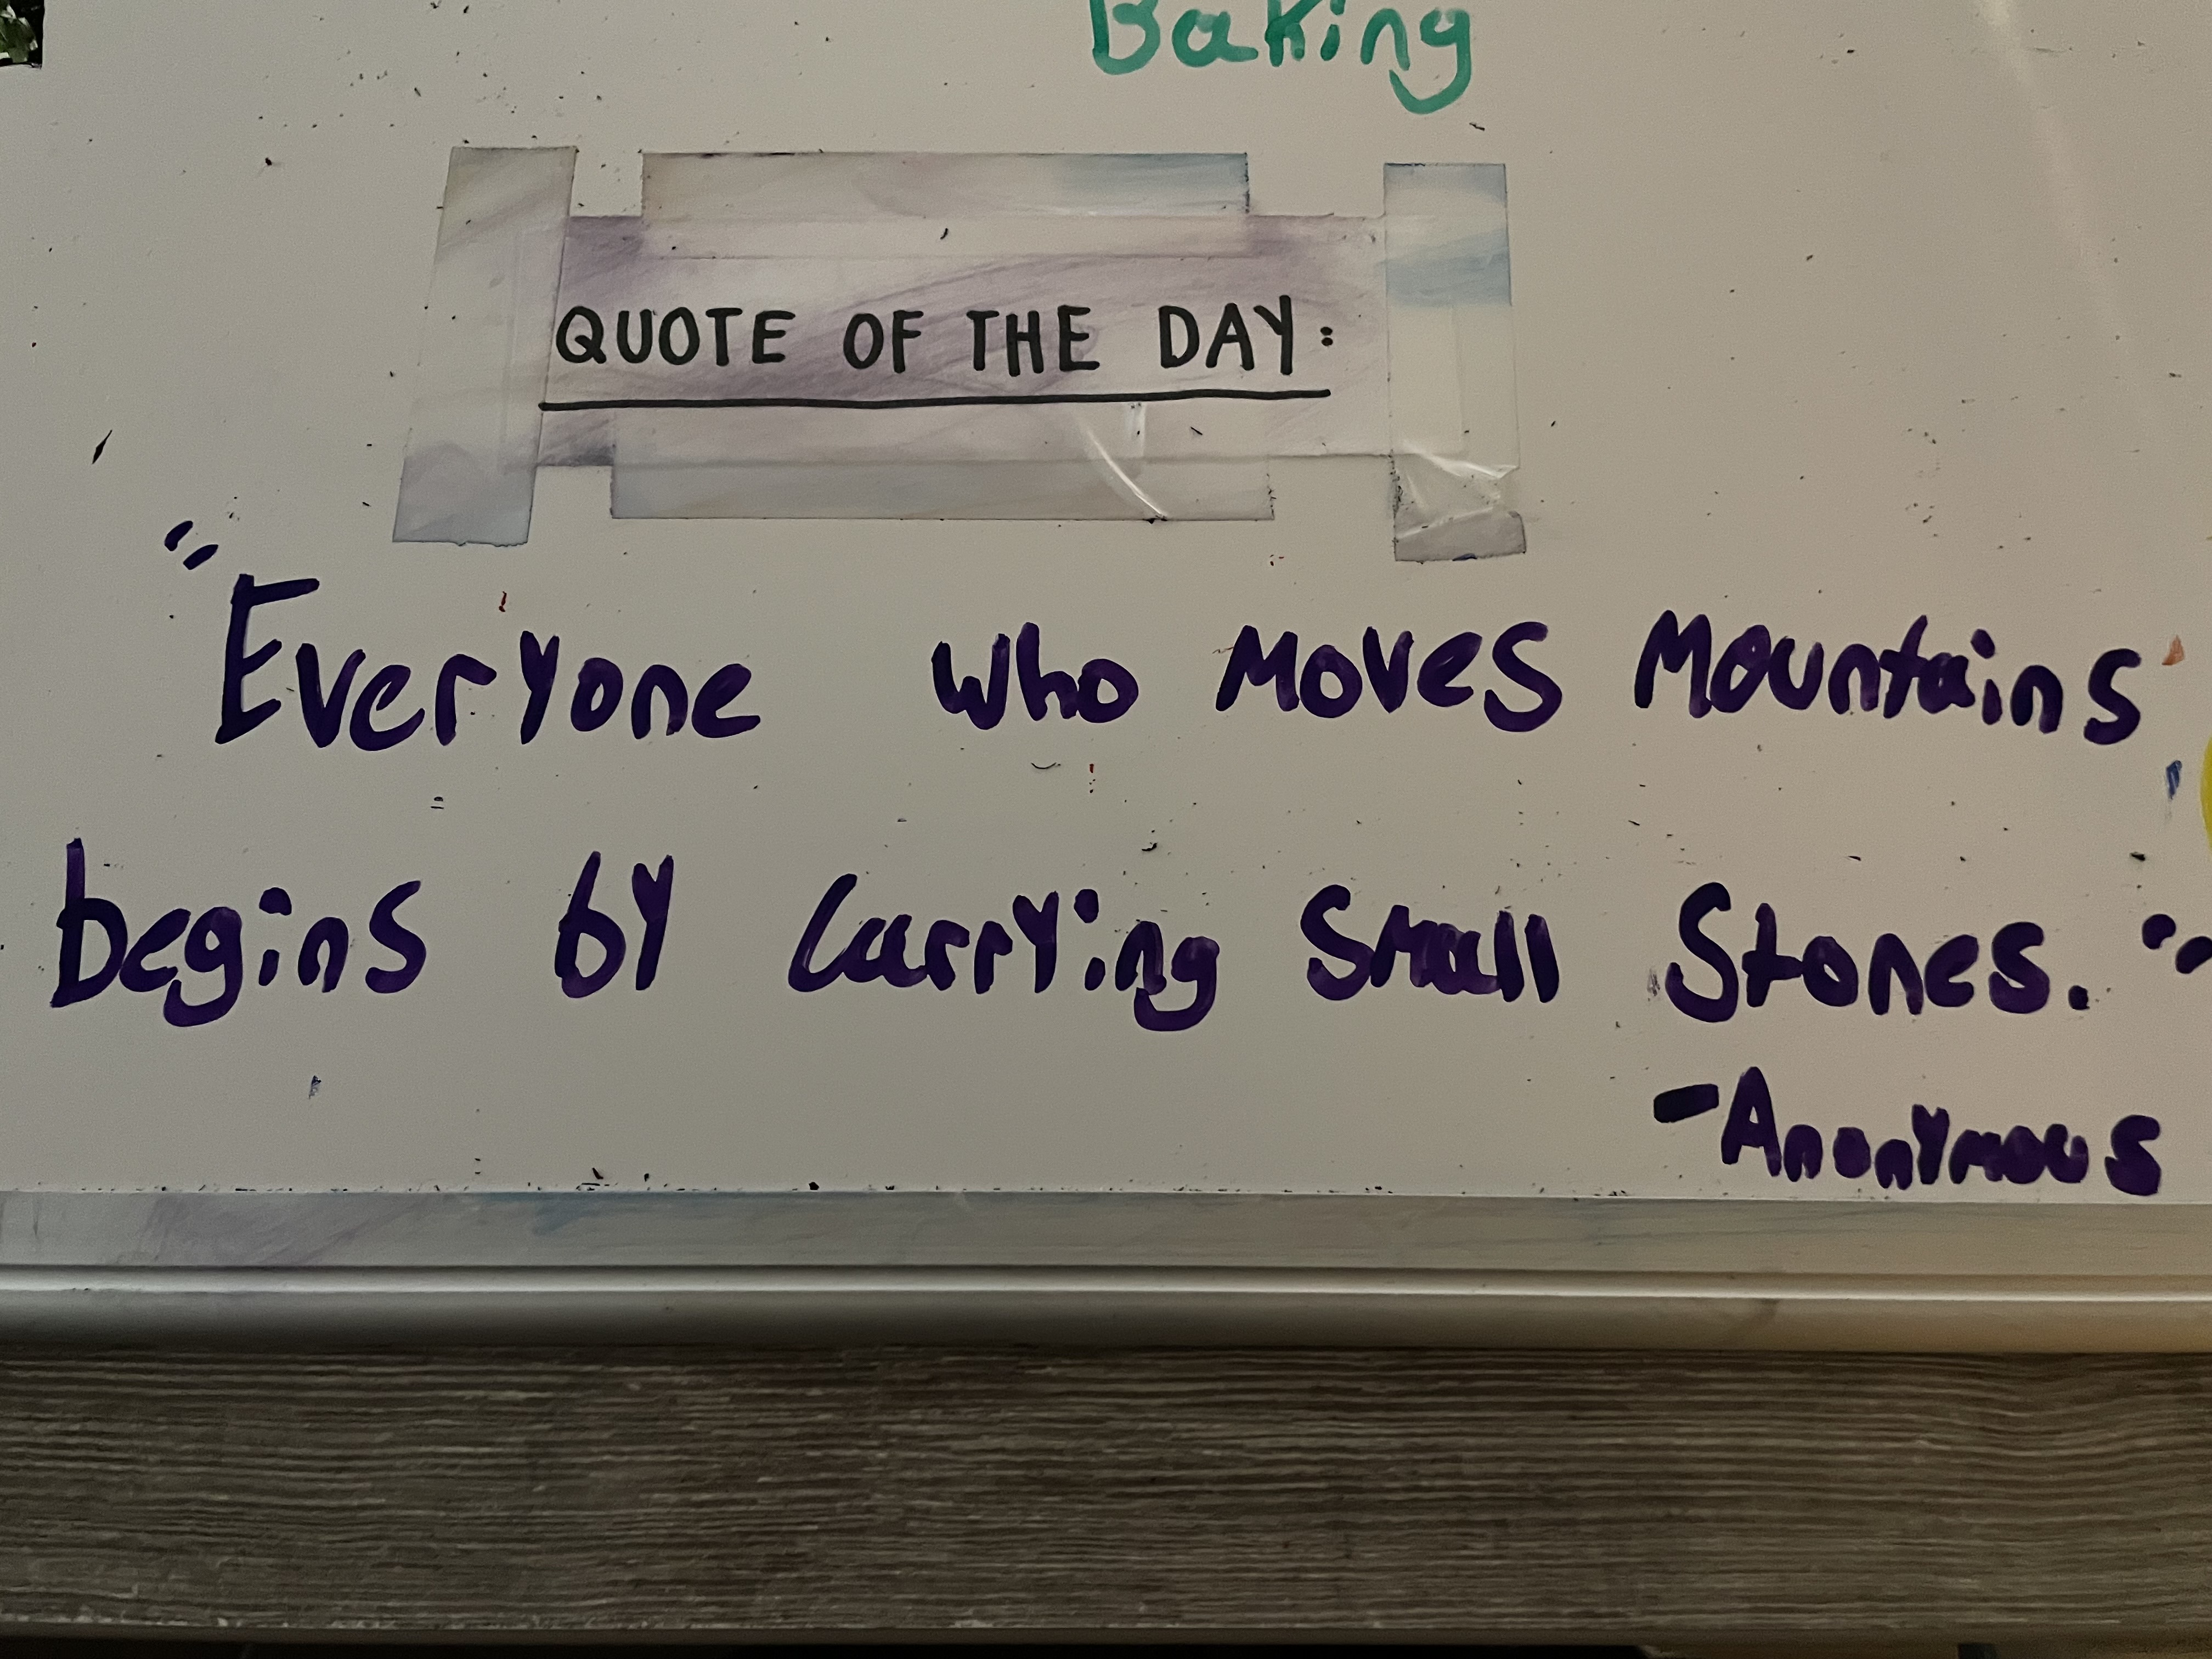 Baking
QUOTE OF THE DAY:
"Everyone who moves mountains
begins by carrying small stones."
-Anonymous